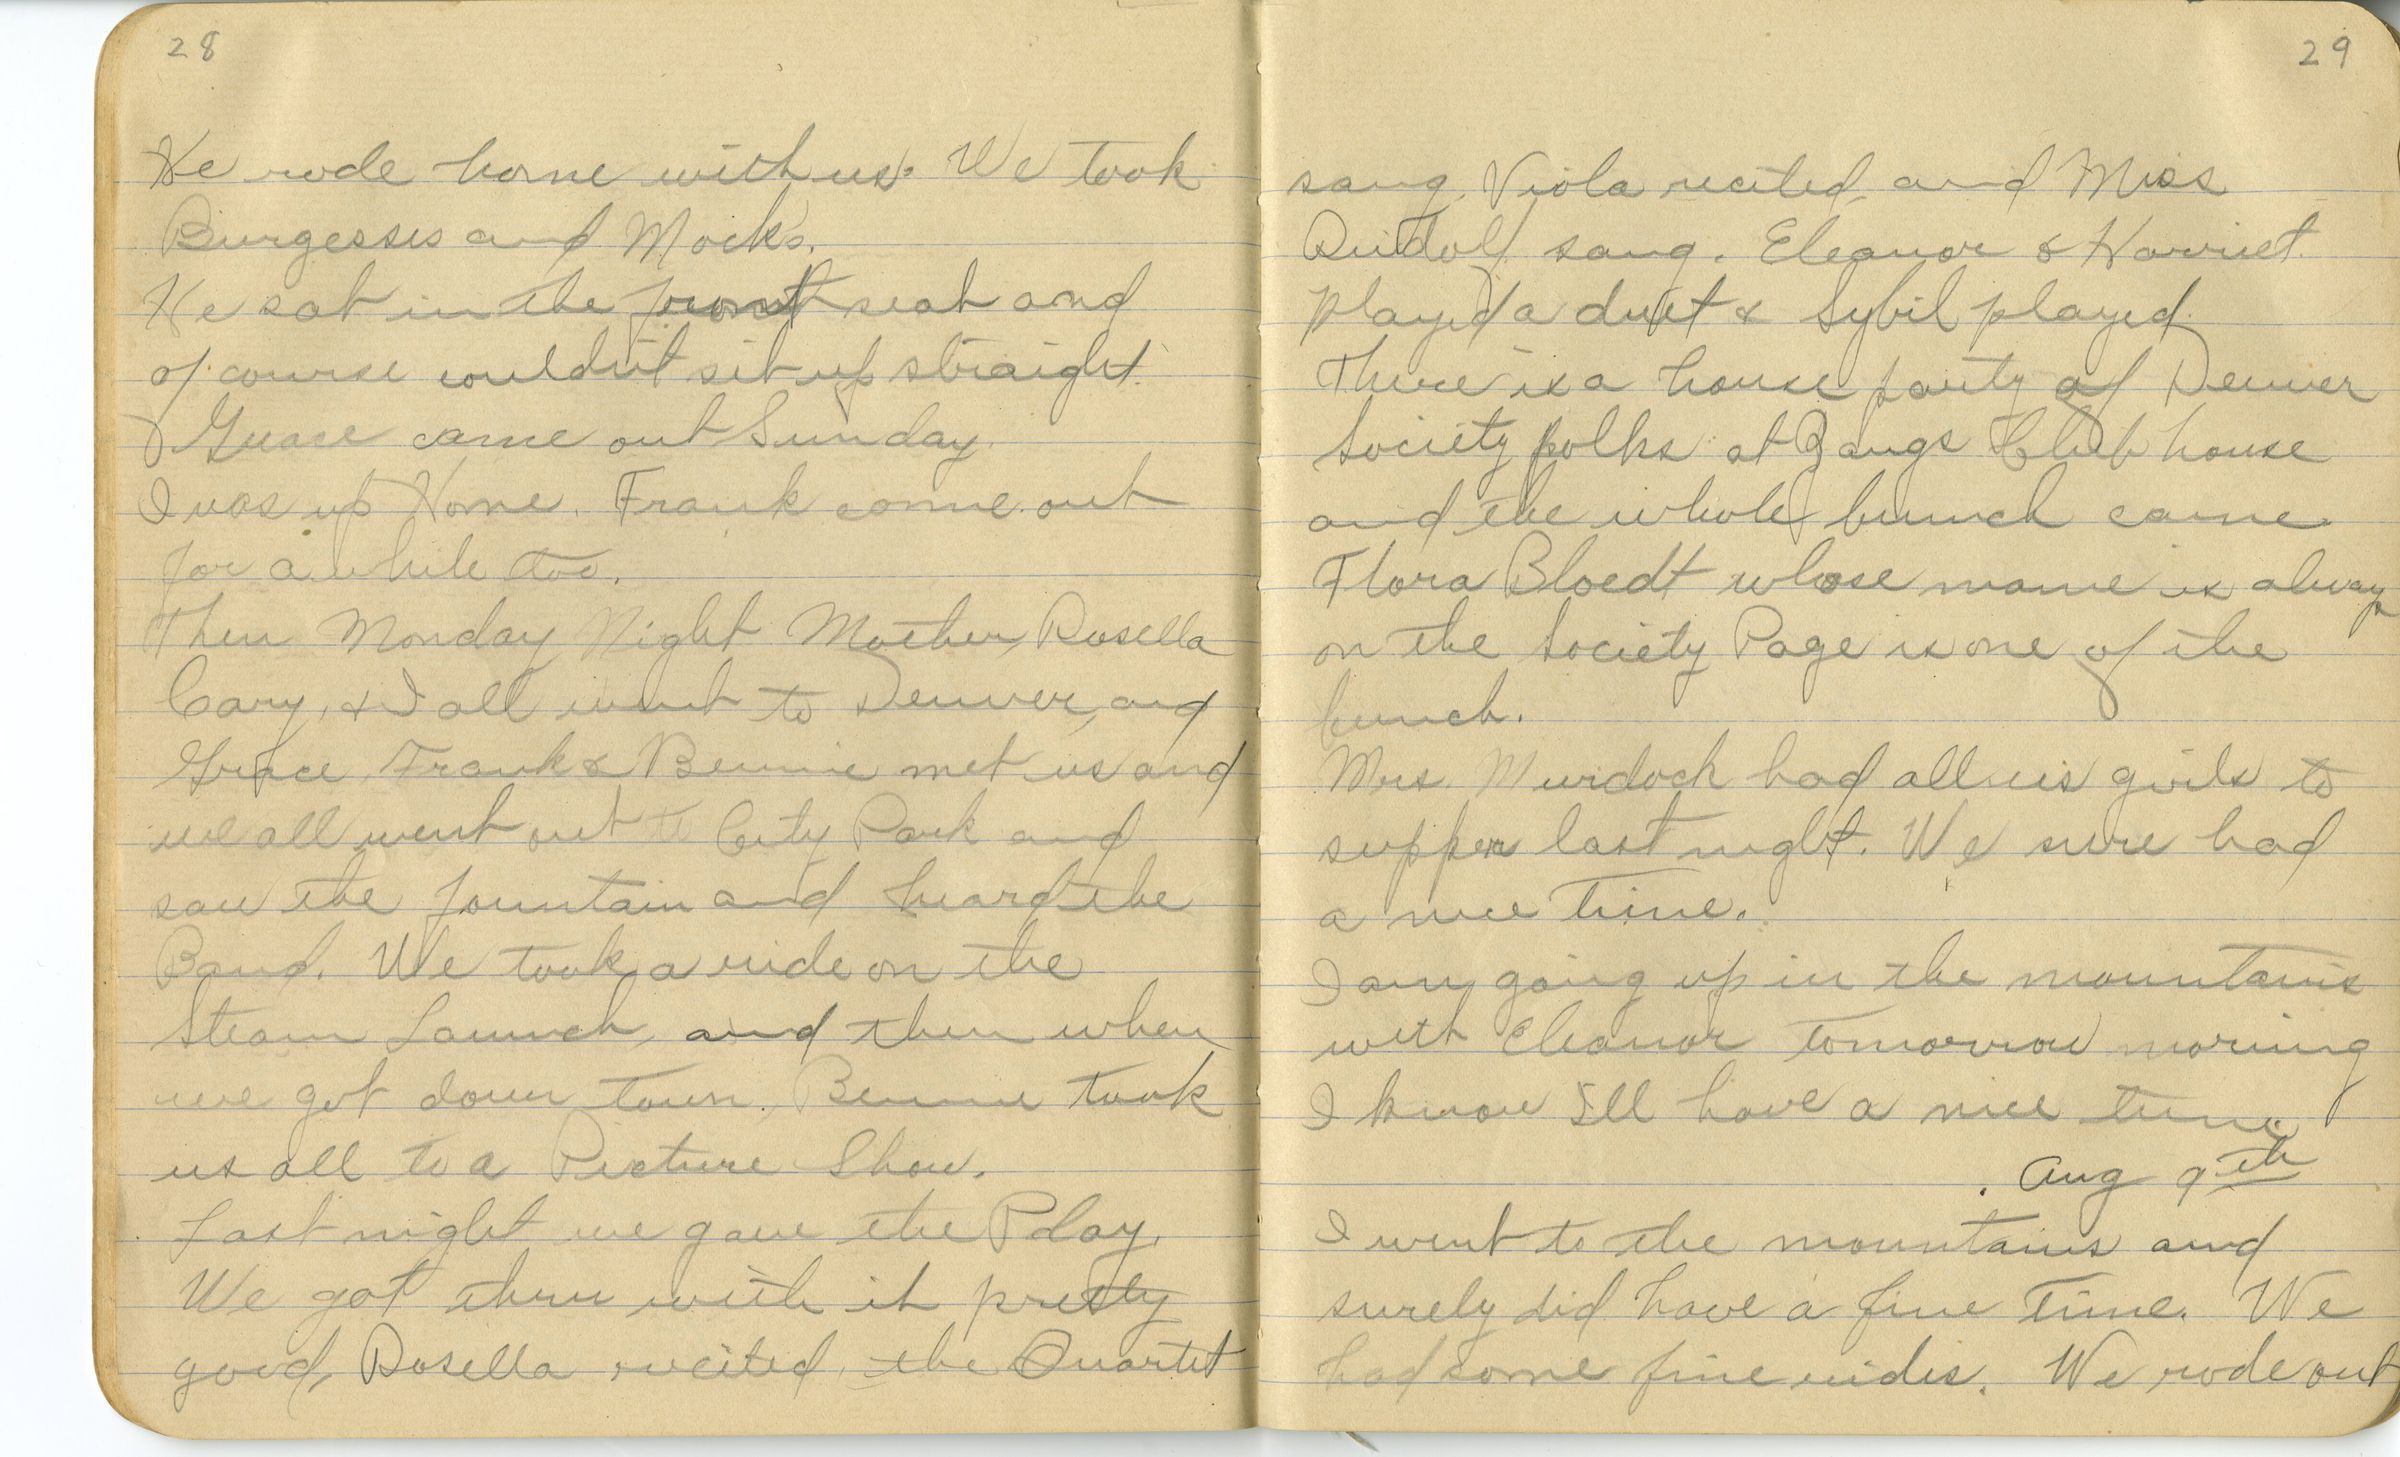 28
He rode home with us. We took
Burgesses and Mocks.
He sat in the front seat and
of course couldn't sit up straight.
Grace came out Sunday.
I was up Home. Frank came out
for a while too.
Then Monday Night Mother, Rosella
Cary, & I all went to Denver, and
Grace, Frank & Bennie met us and
we all went out to City Park and
saw the fountain and heard the
Band. We took a ride on the
Steam Launch, and then when
we got down town, Bennie took
us all to a Picture Show.
Last night we gave the Play.
We got thru with it pretty
good, Rosella recited, the Quartet
29
sang, Viola recited, and Miss
Rudolf sang. Eleanor & Harriet
played a duet & Sybil played.
There is a house party of Denver
Society folks at Bangs Club house
and the whole bunch came.
Flora Bloedt whose name is always
on the Society Page is one of the
bunch.
Mrs. Murdock had all us girls to
supper last night. We sure had
a nice time.
I am going up in the mountains
with Eleanor tomorrow morning
I know I'll have a nice time.
Aug 9th
I went to the mountains and
surely did have a fine time. We
had some fine rides. We rode out